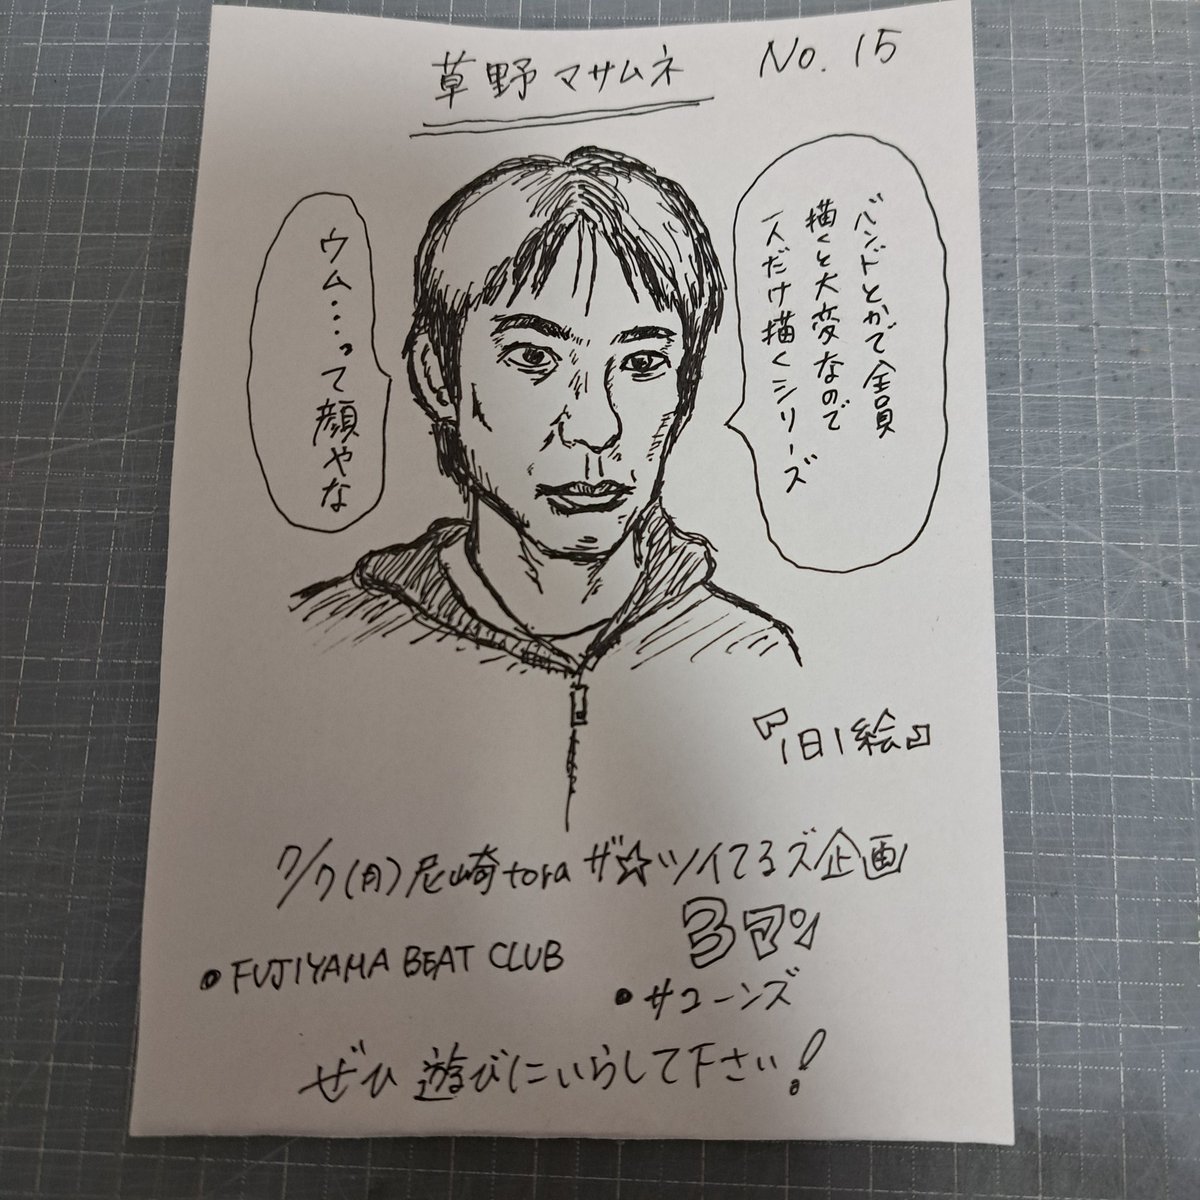 草野マサムネ
No. 15
バンドとかで全員
描くと大変なので
一人だけ描くシリーズ
ウム・・・って顔やな
『1日1絵』
7/7(月)尼崎tora ザ☆ツイてるズ企画
3マン
・FUJIYAMA BEAT CLUB
・サコーンズ
ぜひ遊びにいらして下さい!